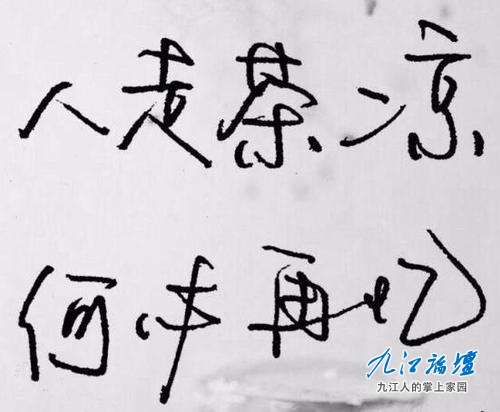 人走茶凉
何必再忆
九江論壇
九江人的掌上家园